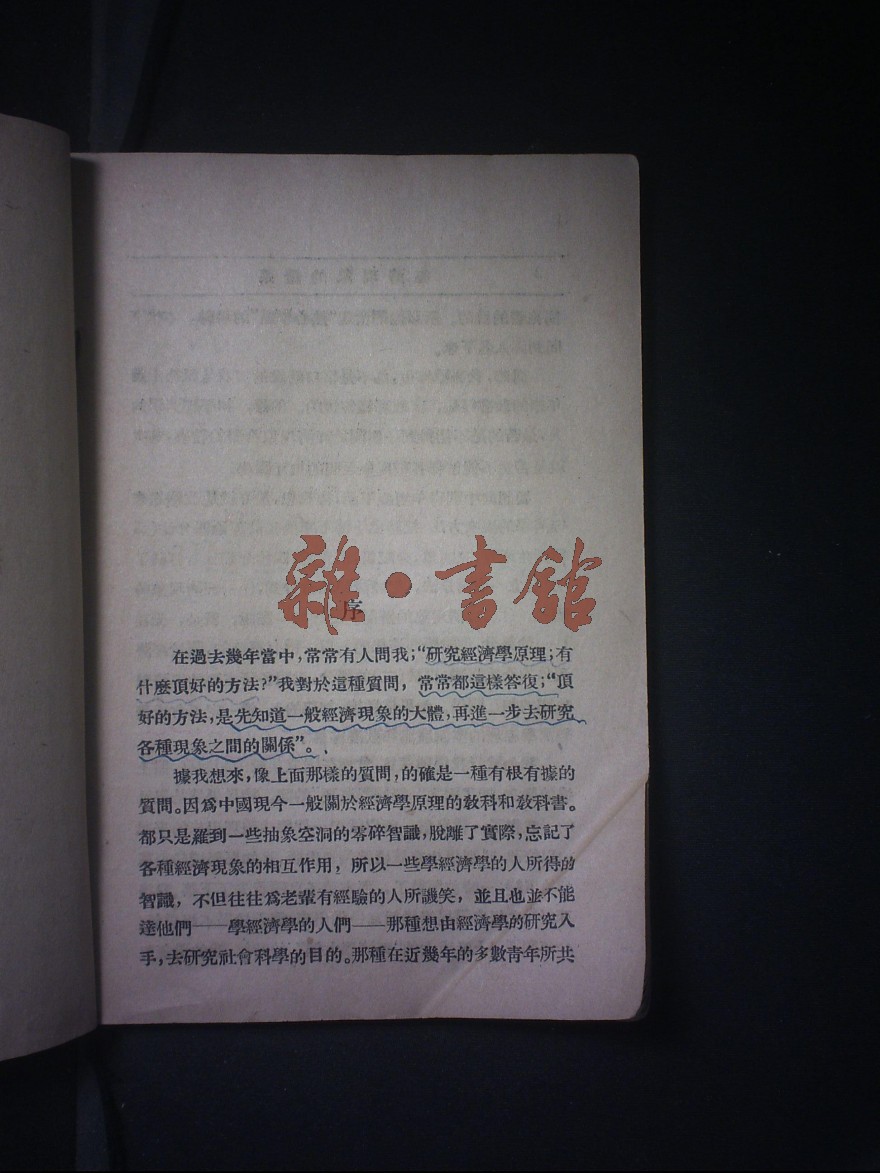 雜·書館
序
在過去幾年當中，常常有人問我；“研究經濟學原理；有
什麼頂好的方法？”我對於這種質問，常常都這樣答復；“頂
好的方法，是先知道一般經濟現象的大體，再進一步去研究
各種現象之間的關係”。
據我想來，像上面那樣的質問，的確是一種有根有據的
質問。因爲中國現今一般關於經濟學原理的敎科和敎科書。
都只是羅到一些抽象空洞的零碎智識，脫離了實際，忘記了
各種經濟現象的相互作用，所以一些學經濟學的人所得的
智識，不但往往爲老輩有經驗的人所譏笑，並且也並不能
達他們——學經濟學的人們——那種想由經濟學的研究入
手，去研究社會科學的目的。那種在近幾年的多數靑年所共